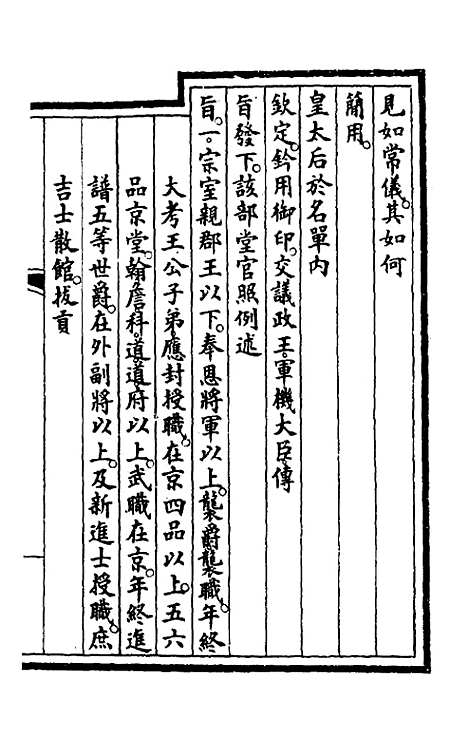 見如常儀。其如何
簡用。
皇太后於名單內
欽定。鈐用御印。交議政王。軍機大臣。傳
旨發下。該部堂官照例述
旨。一。宗室親郡王以下。奉恩將軍以上。襲爵襲職。年終
大考王公子弟。應封授職。在京四品以上。五六
品京堂。翰詹科道。道府以上。武職在京。年終進
譜五等世爵。在外副將以上。及新進士授職。庶
吉士散館。拔貢